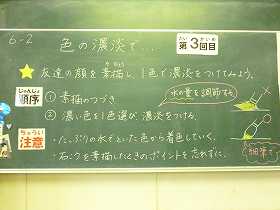 6-2
色の濃淡で....
だい かいめ
第3回目
☆ 友達の顔を素描し、1色で濃淡をつけてみよう。
じゅんじょ
順序
① 素描のつづき
② 濃い色を1色選び、濃淡をつける。
水の量を調節する。
ちゅうい
注意
・たっぷりの水でといた色から着色していく。
・石こうを素描したときのポイントを忘れずに。
細筆で